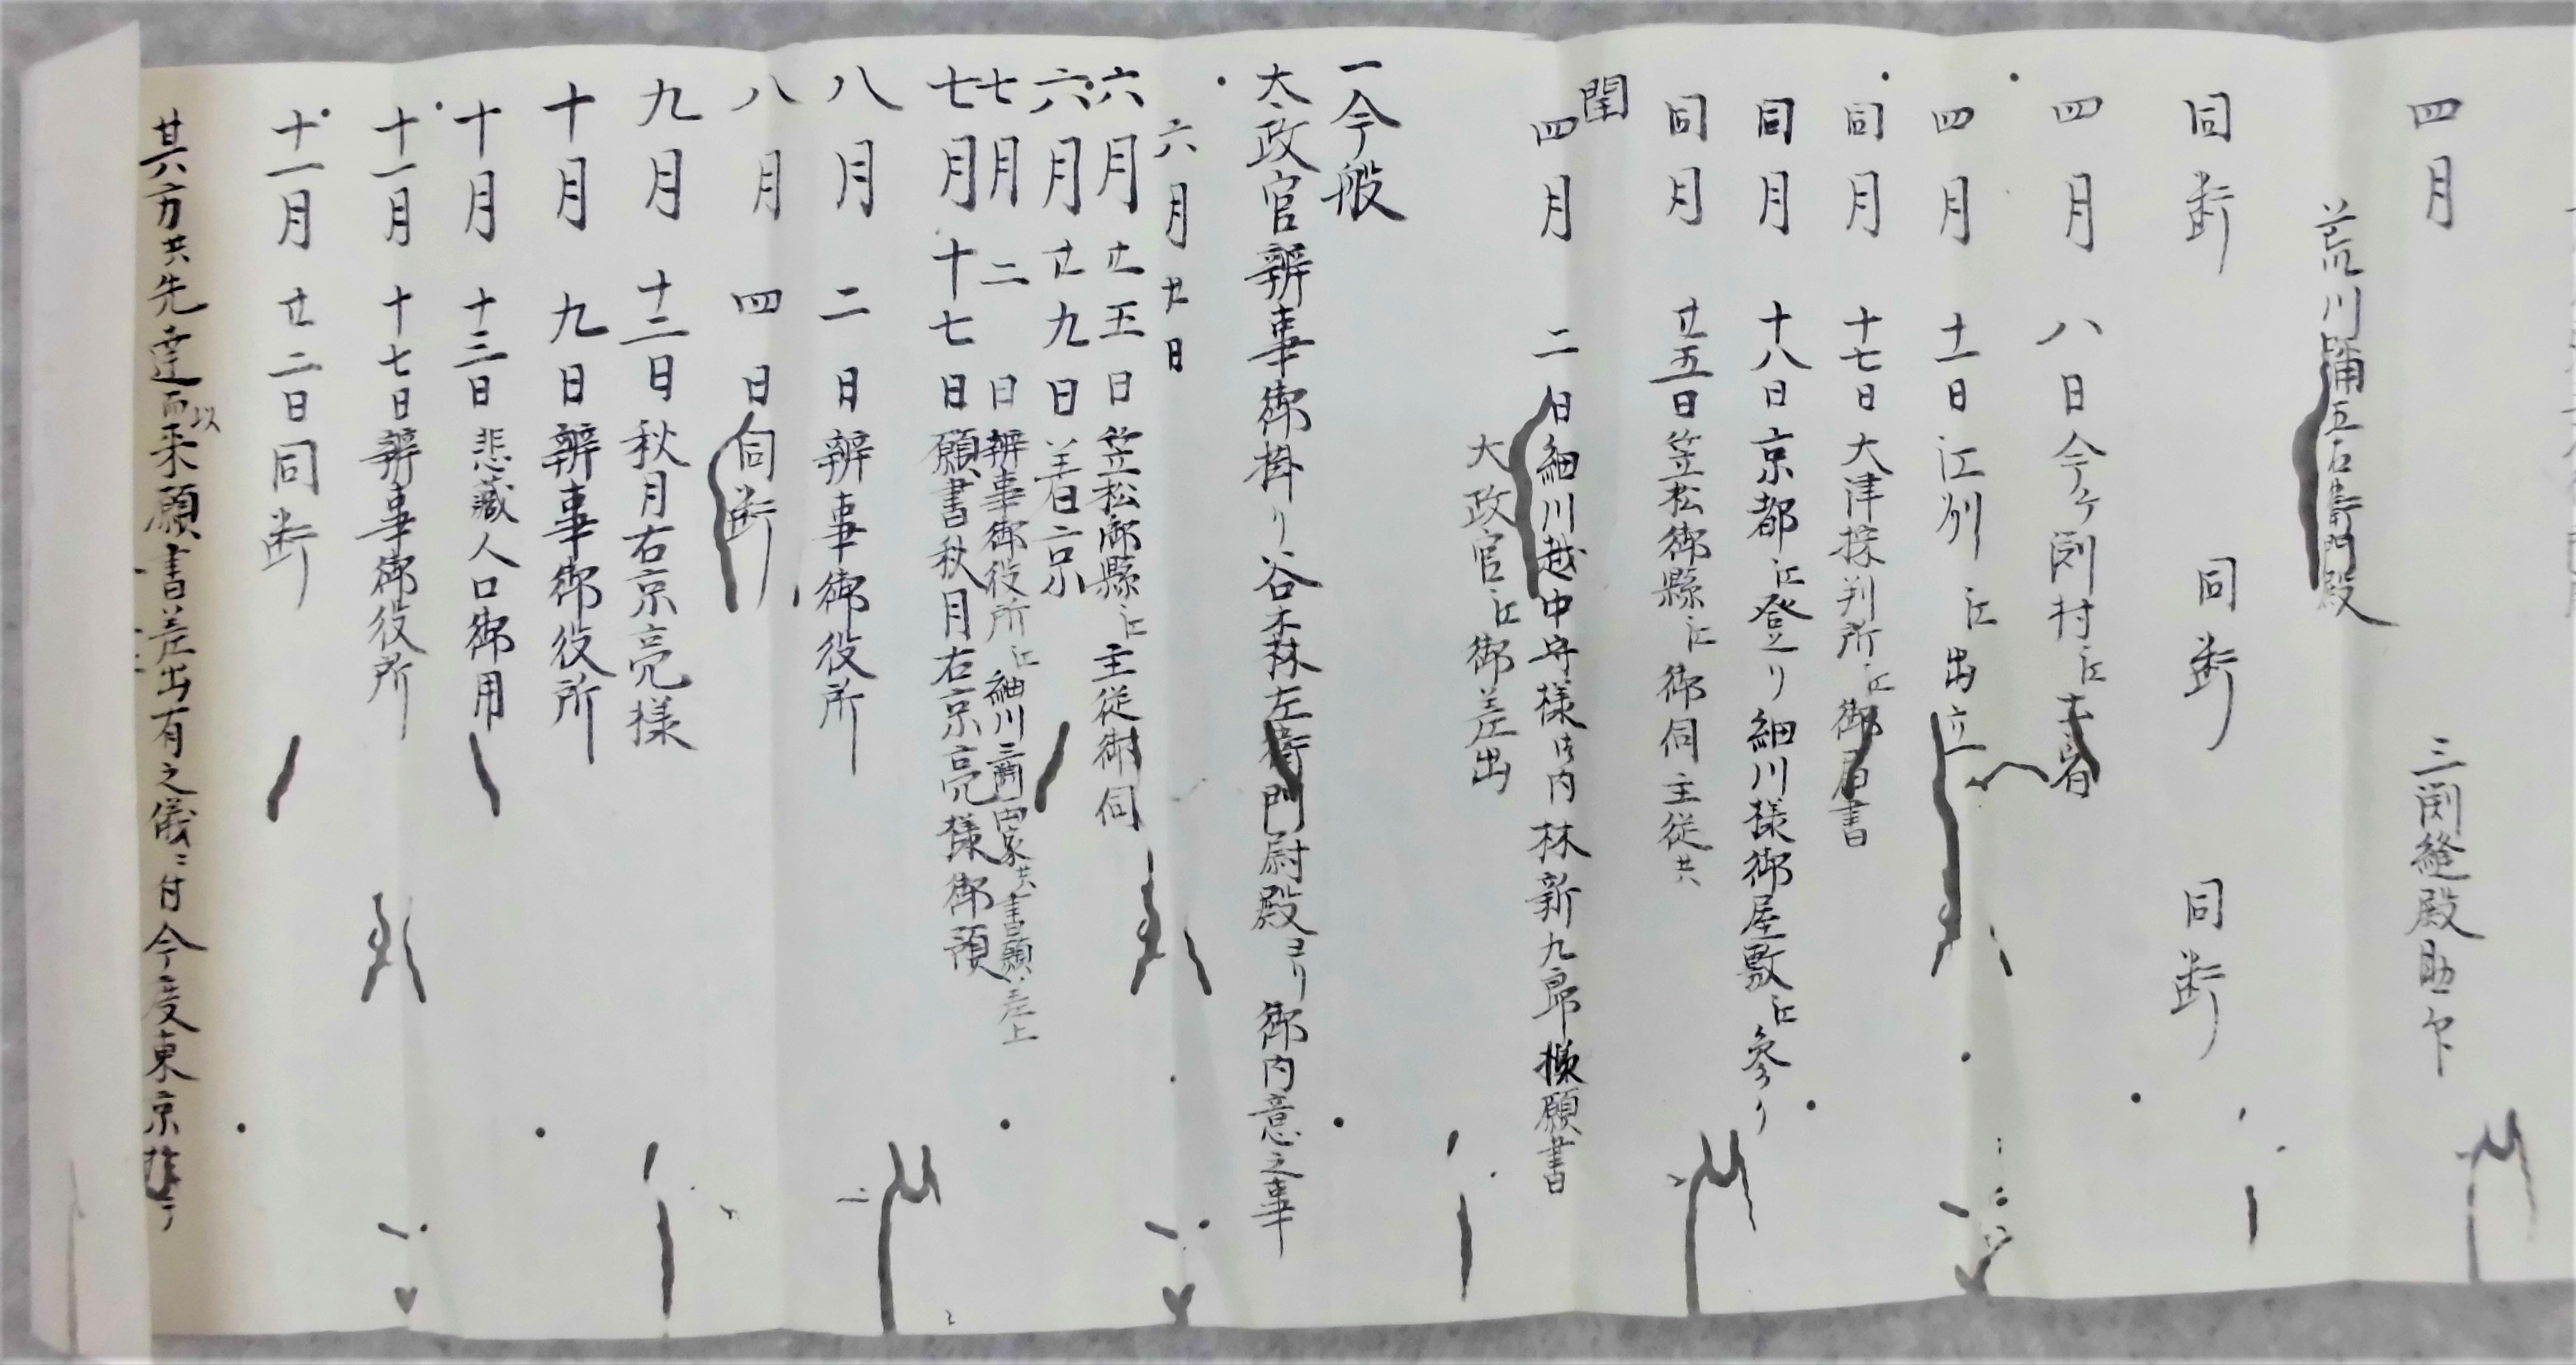 四月
三関縫殿助乍
荒川蒲五右衛門殿
同断　同断　同断
四月　八日今ケ渕村江
四月　十一日江州江出立
同月　十七日大津探判所江御届書
同月　十八日京都江登リ細川様御屋敷江参リ
同月　廿五日笠松御縣江御伺主従共
閏四月　二日細川越中守様御内林新九郎様願書
大政官江御差出
一今般
太政官辨事御掛リ谷森左衛門尉殿ヨリ御内意之事
六月廿日
六月廿五日笠松御縣江主従御伺
六月廿九日着京
七月二日辨事御役所江細川三淵両家共書願差上
七月十七日願書秋月右京亮様御預
八月二日辨事御役所
八月四日同断
九月十二日秋月右京亮様
十月九日辨事御役所
十月十三日悲蔵人口御用
十一月十七日辨事御役所
十一月廿二日同断
其方共先達而以来願書差出有之儀ニ付今度東京